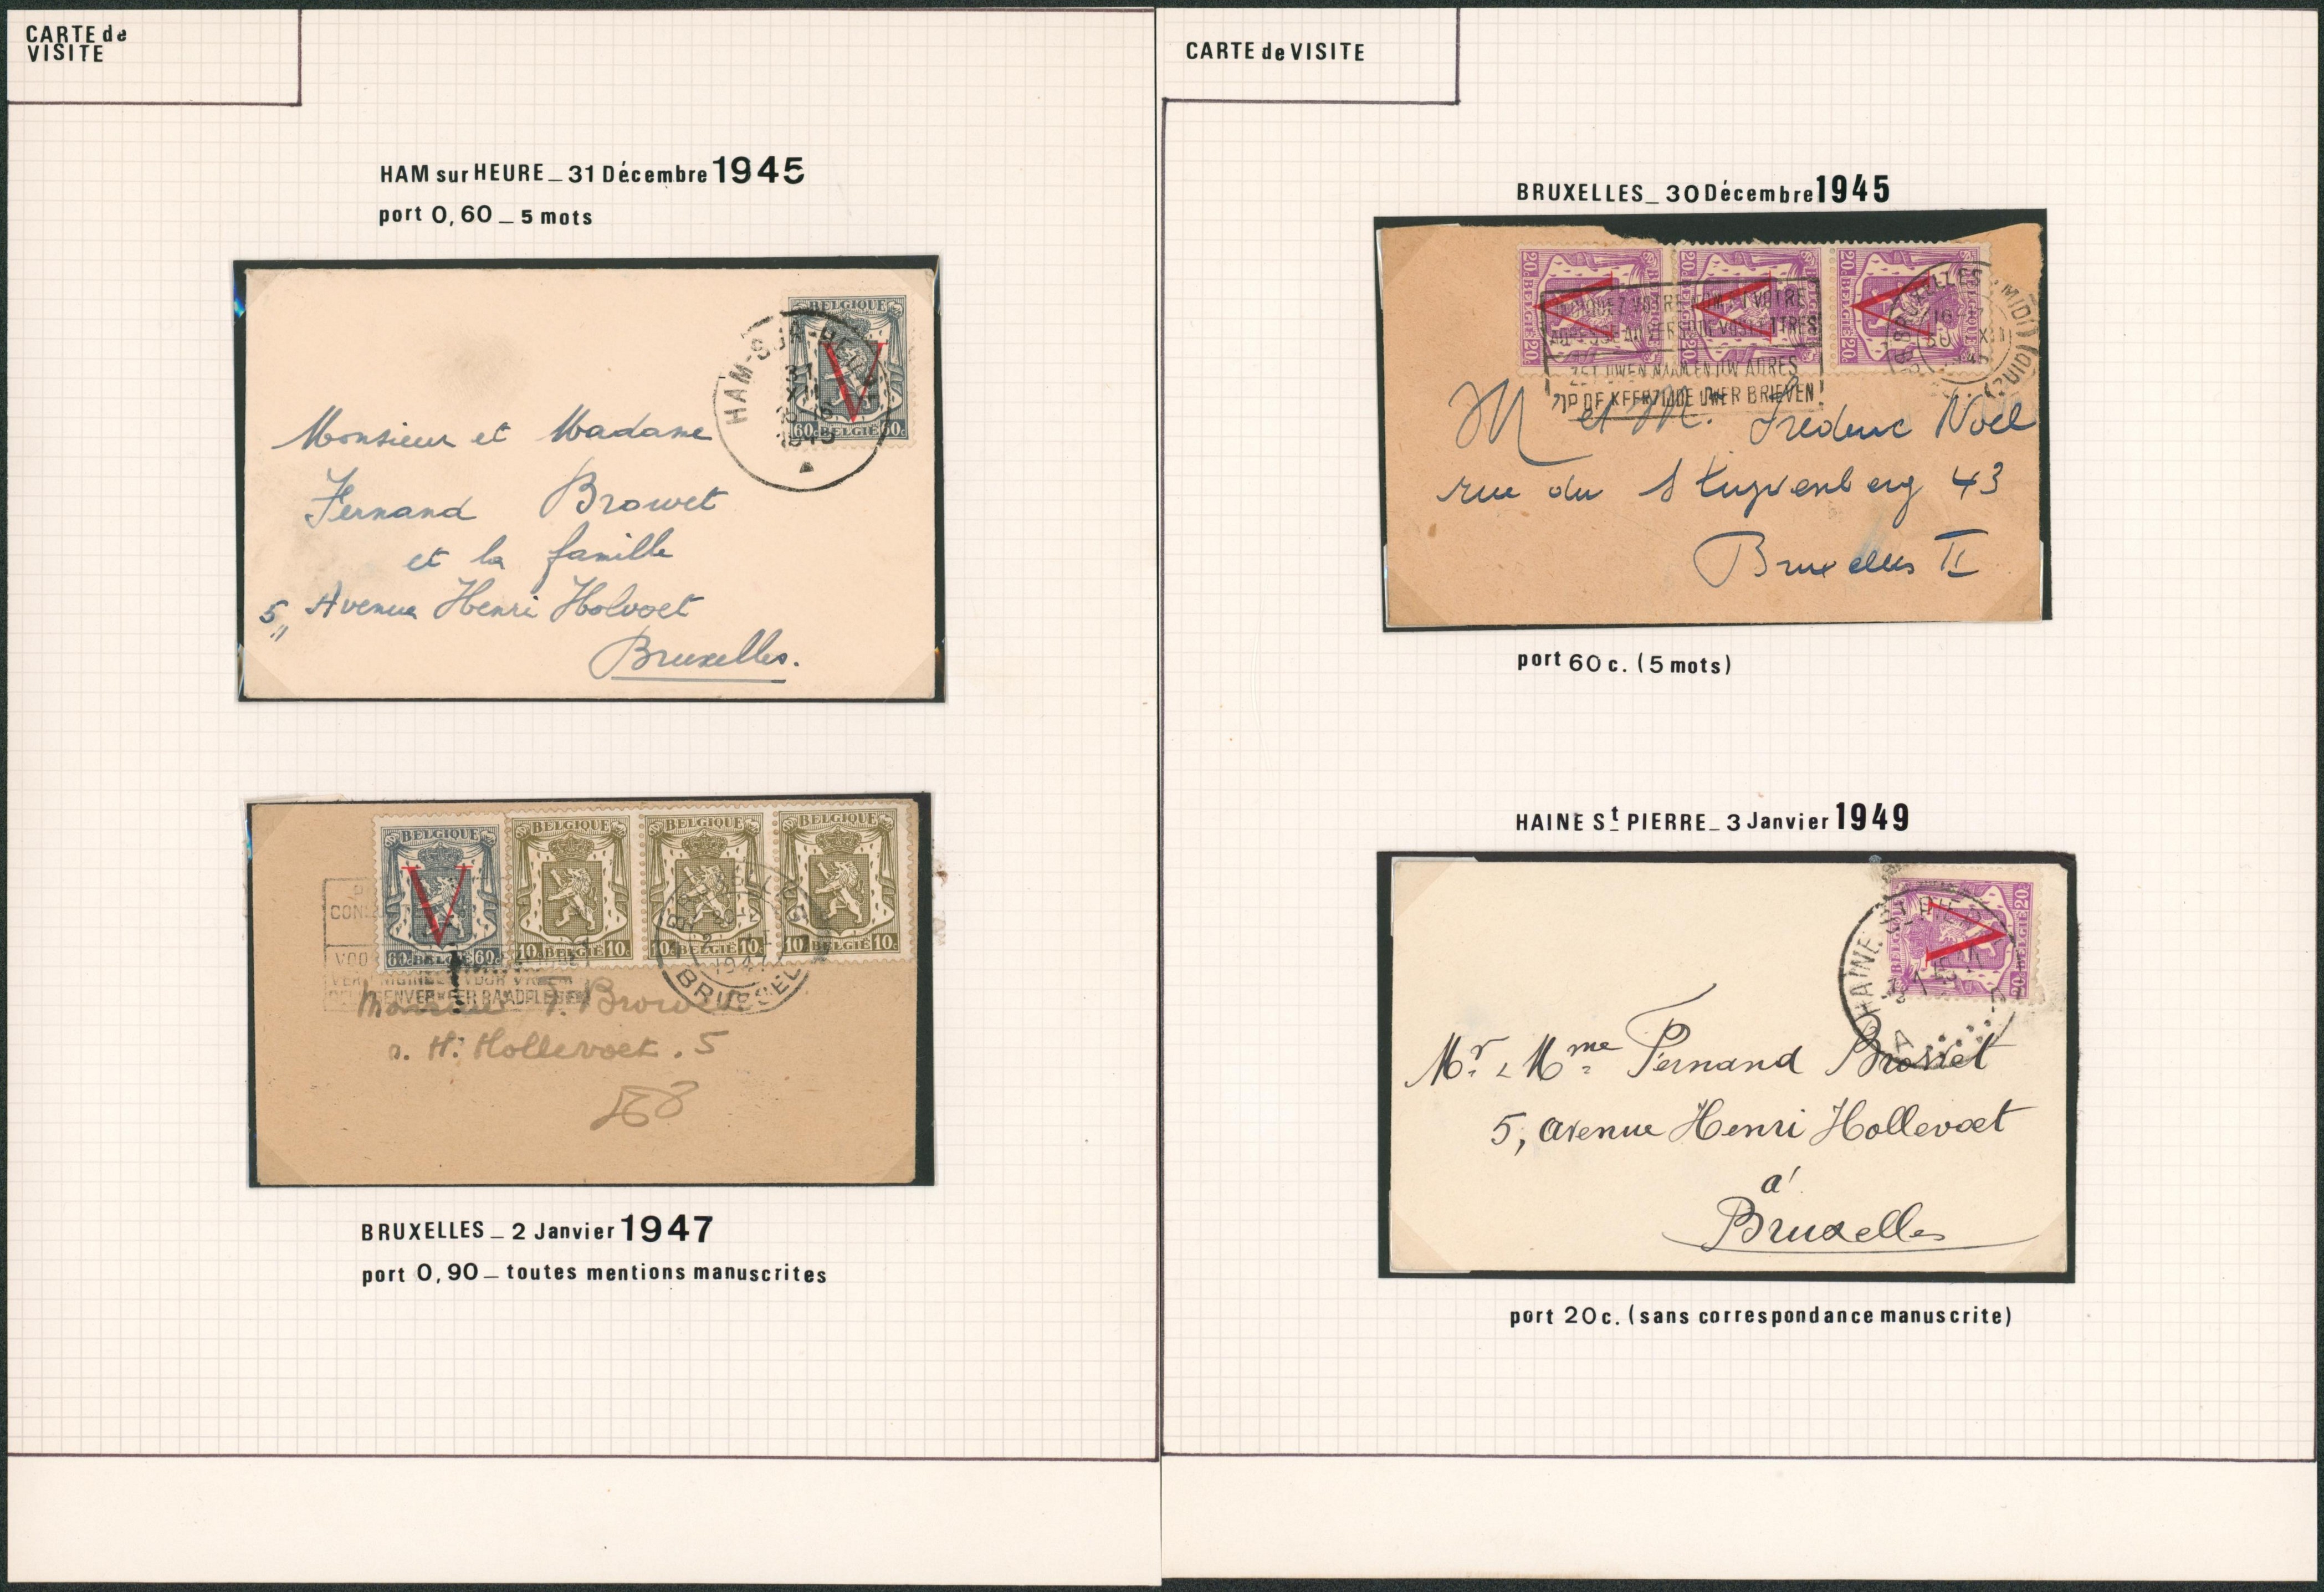 CARTE de
VISITE
HAM sur HEURE _ 31 Décembre 1945
port 0,60 _ 5 mots
BELGIQUE
60c BELGIË 60c
HAM-SUR-HEURE
31
XII
1945
Monsieur et Madame
Fernand Browet
et la famille
5,, Avenue Henri Holvoet
Bruxelles.
BELGIQUE BELGIQUE BELGIQUE BELGIQUE
60c BELGIË 60c 10c BELGIË 10c 10c BELGIË 10c 10c BELGIË 10c
1947
BRUSSEL
VOOR
Monsieur F. Browet
a. H. Hollevoet. 5
BRUXELLES _ 2 Janvier 1947
port 0,90 _ toutes mentions manuscrites
CARTE de VISITE
BRUXELLES _ 30 Décembre 1945
20c BELGIË 20c BELGIQUE
20c BELGIË 20c BELGIQUE
20c BELGIË 20c BELGIQUE
INDIQUEZ VOTRE NOM ET VOTRE
ADRESSE AU VERSO DE VOS LETTRES
ZET UWEN NAAM EN UW ADRES
OP DE KEERZIJDE UWER BRIEVEN
BRUXELLES (MIDI)
30 XII
1945
M et Mme Frédéric Noël
rue du Stuyvenberg 43
Bruxelles II
port 60 c. (5 mots)
HAINE St PIERRE _ 3 Janvier 1949
BELGIQUE 20c
20c BELGIË
HAINE-ST-PIERRE
A
Mr & Mme Fernand Browet
5, avenue Henri Hollevoet
à
Bruxelles
port 20 c. (sans correspondance manuscrite)